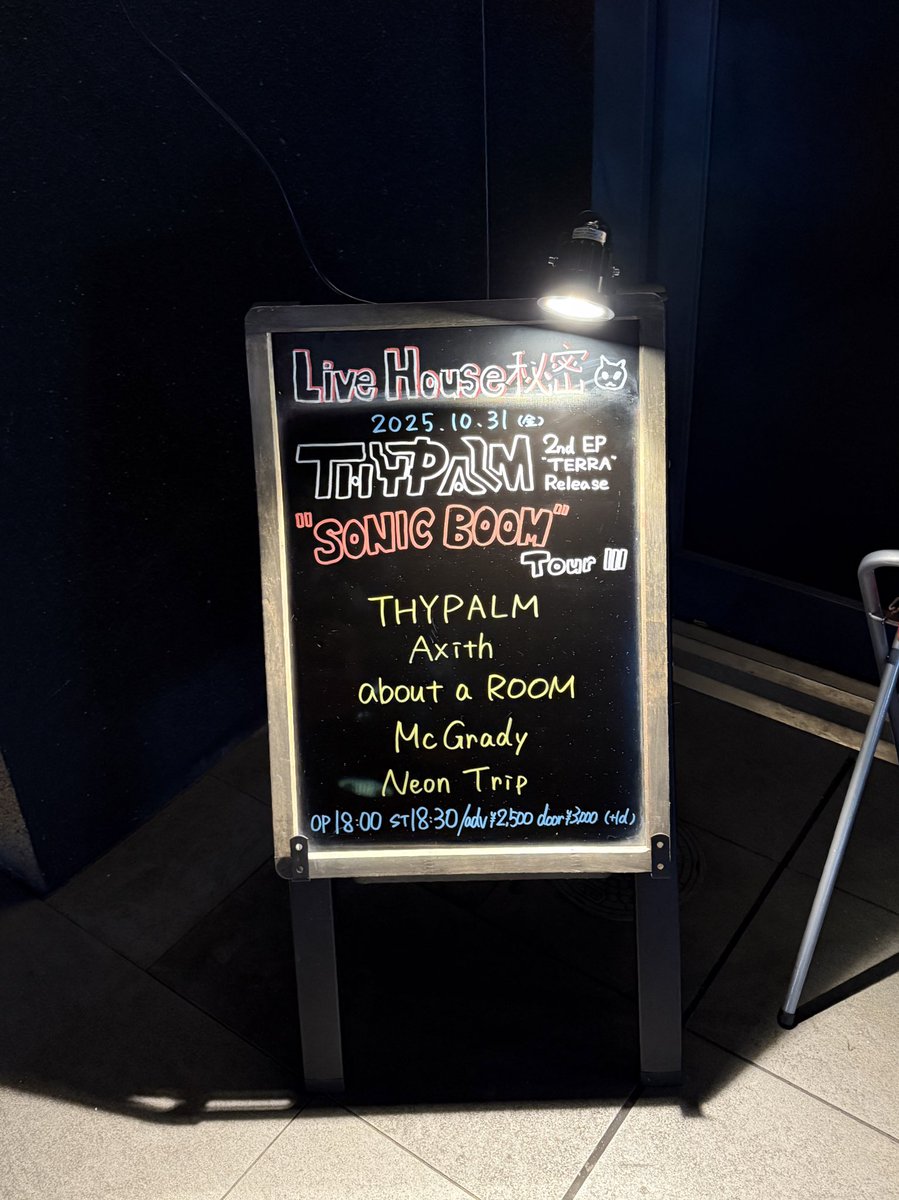 Live House秘密
2025.10.31(金)
THYPALM
2nd EP
"TERRA"
Release
"SONIC BOOM"
Tour III
THYPALM
Axith
about a ROOM
McGrady
Neon Trip
OP18:00 ST18:30/adv¥2,500 door¥3,000 (+1d)